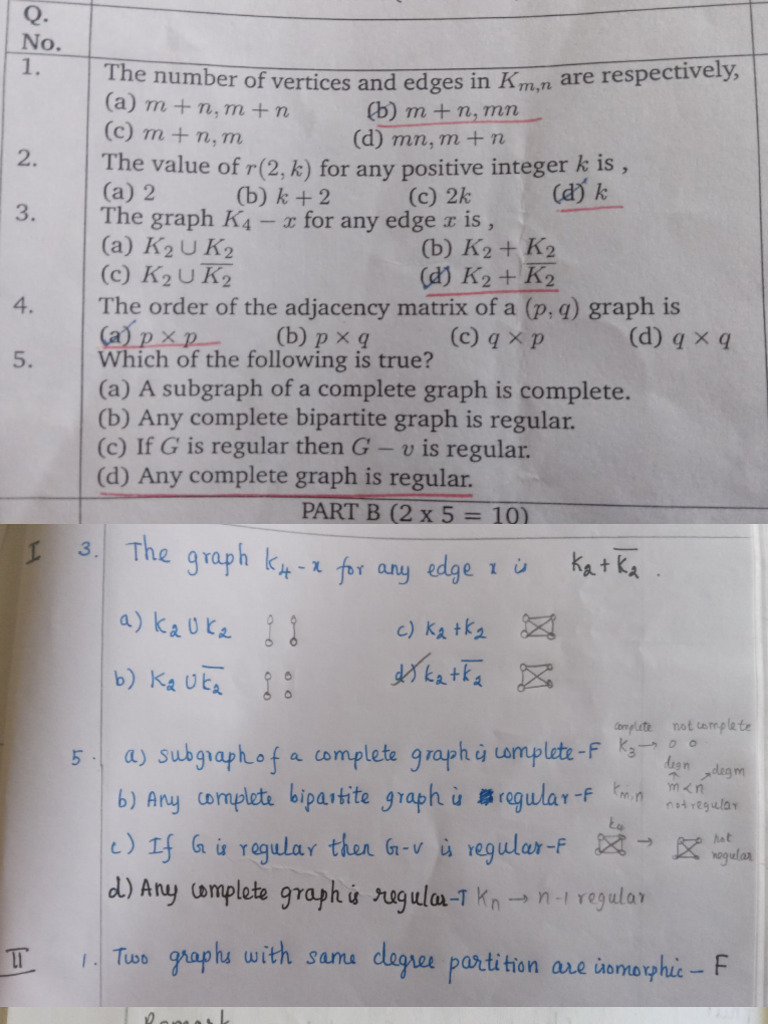 Q.
No.
1. The number of vertices and edges in K_{m,n} are respectively,
(a) m + n, m + n (b) m + n, mn
(c) m + n, m (d) mn, m + n
2. The value of r(2, k) for any positive integer k is ,
(a) 2 (b) k + 2 (c) 2k (d) k
3. The graph K₄ − x for any edge x is ,
(a) K₂ ∪ K₂ (b) K₂ + K₂
(c) K₂ ∪ K̅₂ (d) K₂ + K̅₂
4. The order of the adjacency matrix of a (p, q) graph is
(a) p × p (b) p × q (c) q × p (d) q × q
5. Which of the following is true?
(a) A subgraph of a complete graph is complete.
(b) Any complete bipartite graph is regular.
(c) If G is regular then G − v is regular.
(d) Any complete graph is regular.
PART B (2 x 5 = 10)
I 3. The graph k₄-x for any edge x is k₂+k̅₂ .
a) k₂ U k₂ c) k₂ + k₂
b) k₂ U k̅₂ d) k₂ + k̅₂
complete not complete
5. a) subgraph of a complete graph is complete - F k₃ → o o
degn degm
b) Any complete bipartite graph is regular - F k_{m,n} m < n
not regular
c) If G is regular then G-v is regular - F → not regular
d) Any complete graph is regular - T kn → n-1 regular
II 1. Two graphs with same degree partition are isomorphic - F